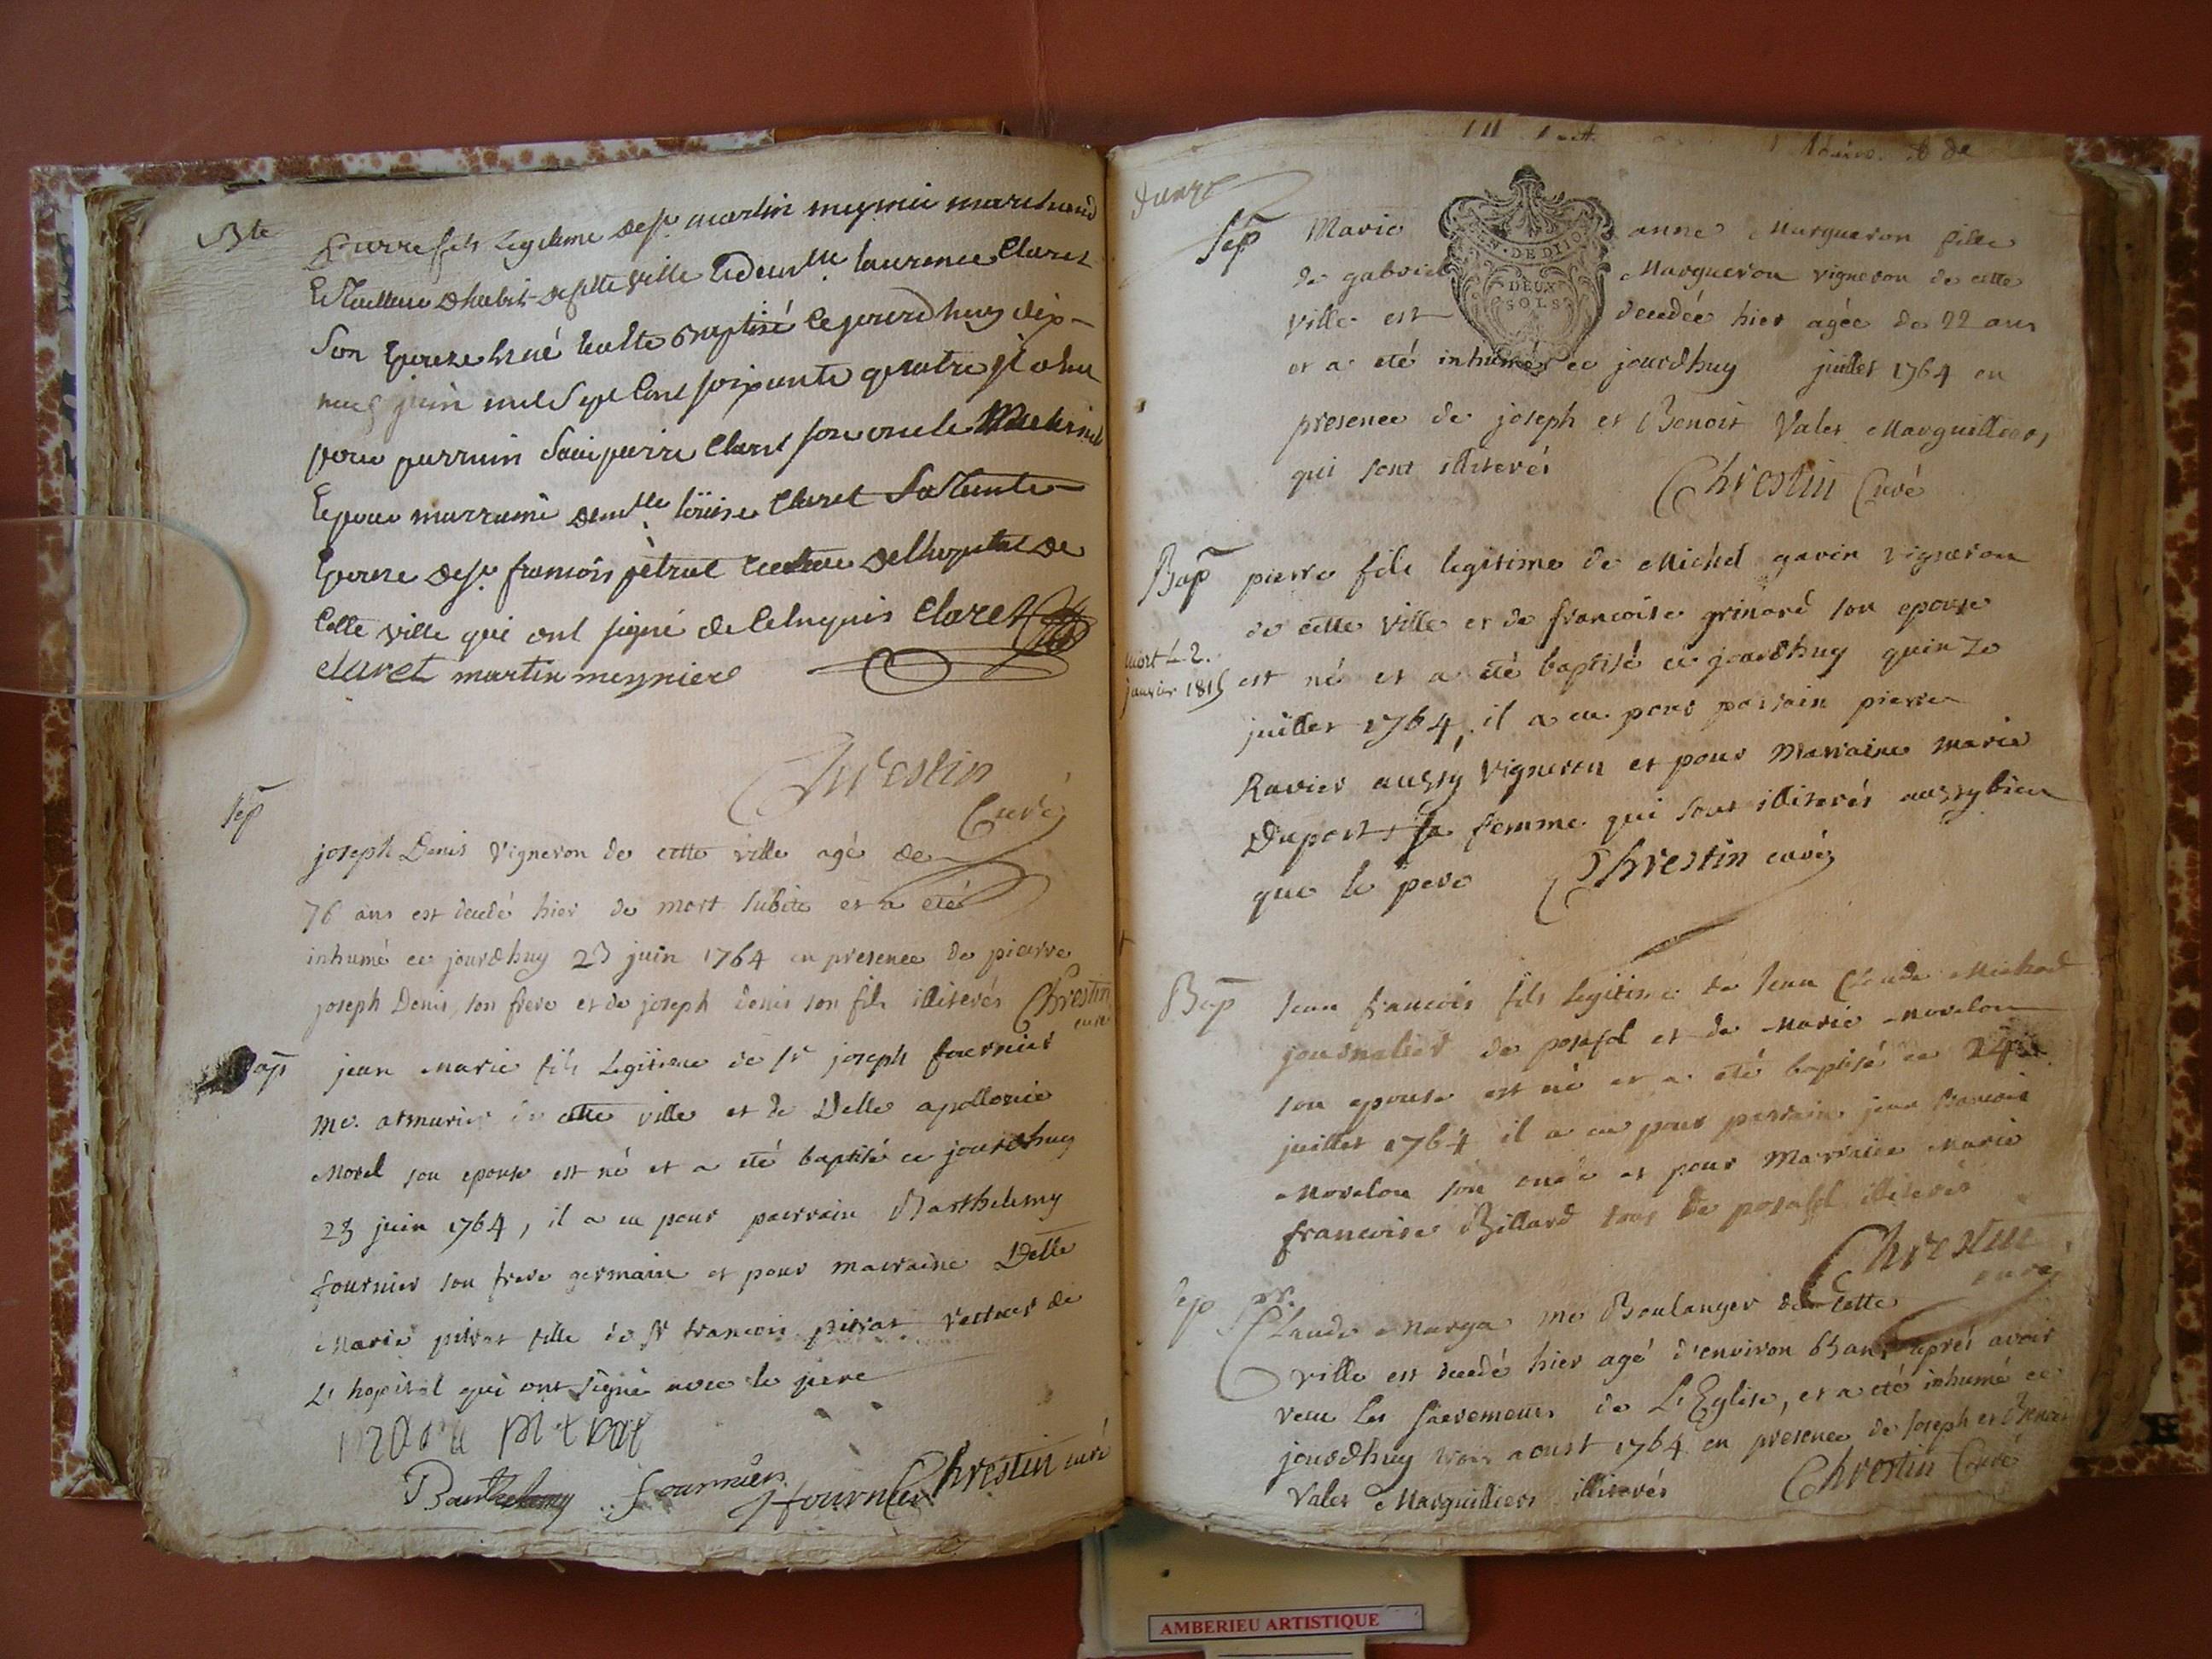 Bte
Pierre fils legitime de sr martin meynier marchand
Et tailleur dhabit de cette ville et de dlle laurence Claret
Son Epouse est né et a été baptisé ce jourdhuy dix-
neuf juin mil sept cent soixante quatre il a eu
pour parrain sieur pierre Claret son oncle
Et pour marraine demlle loüise Claret sa tante
Epouse de sr francois pitrat recteur de lhopital de
cette ville qui ont signé de ce enquis Claret
claret martin meynier
Chrestin
Curé
Sep
joseph Denis Vigneron de cette ville agé de
76 ans est decedé hier de mort subite et a eté
inhumé ce jourdhuy 23 juin 1764 en presence de pierre
joseph Denis son frere et de joseph denis son fils illiterés Chrestin
curé
Bap
jean Marie fils Legitime de sr joseph fournier
me. armurier de cette ville et de Delle apollonie
Morel son epouse est né et a eté baptisé ce jourdhuy
23 juin 1764, il a eu pour parrain Barthelemy
fournier son frere germain et pour marraine Delle
Marie pitrat fille de sr francois pitrat recteur de
L'hopital qui ont signé avec le pere
marie pitrat
Barthelemy fournier fournier Chrestin curé
Sep
Marie anne Margueron fille
de gabriel Margueron vigneron de cette
ville est decedée hier agée de 22 ans
et a eté inhumée ce jourdhuy juillet 1764 en
presence de joseph et Benoit Valet Marguilliers
qui sont illiterés Chrestin Curé
DE DIJON
DEUX
SOLS
Bap
pierre fils legitime de Michel gavin vigneron
de cette ville et de francoise grinard son epouse
est né et a eté baptisé ce jourdhuy quinze
juillet 1764, il a eu pour parrain pierre
Ravier aussy Vigneron et pour Marraine marie
Duport sa femme qui sont illiterés aussy bien
que le pere Chrestin curé
mort le 2.
janvier 1815
Bap
Jean francois fils legitime de Jean Claude Michard
journalier de posafol et de Marie Morelon
son epouse est né et a eté baptisé ce 24
juillet 1764 il a eu pour parrain jean francois
Morelon son oncle et pour Marraine Marie
francoise Billard tous de posafol illiterés
Chrestin
curé
Sep
Claude Marga me Boulanger de cette
ville est decedé hier agé d'environ 63 ans apres avoir
recu les sacremens de L'Eglise, et a eté inhumé ce
jourdhuy trois aoust 1764 en presence de joseph et Benoit
Valet Marguilliers illiterés Chrestin Curé
AMBERIEU ARTISTIQUE